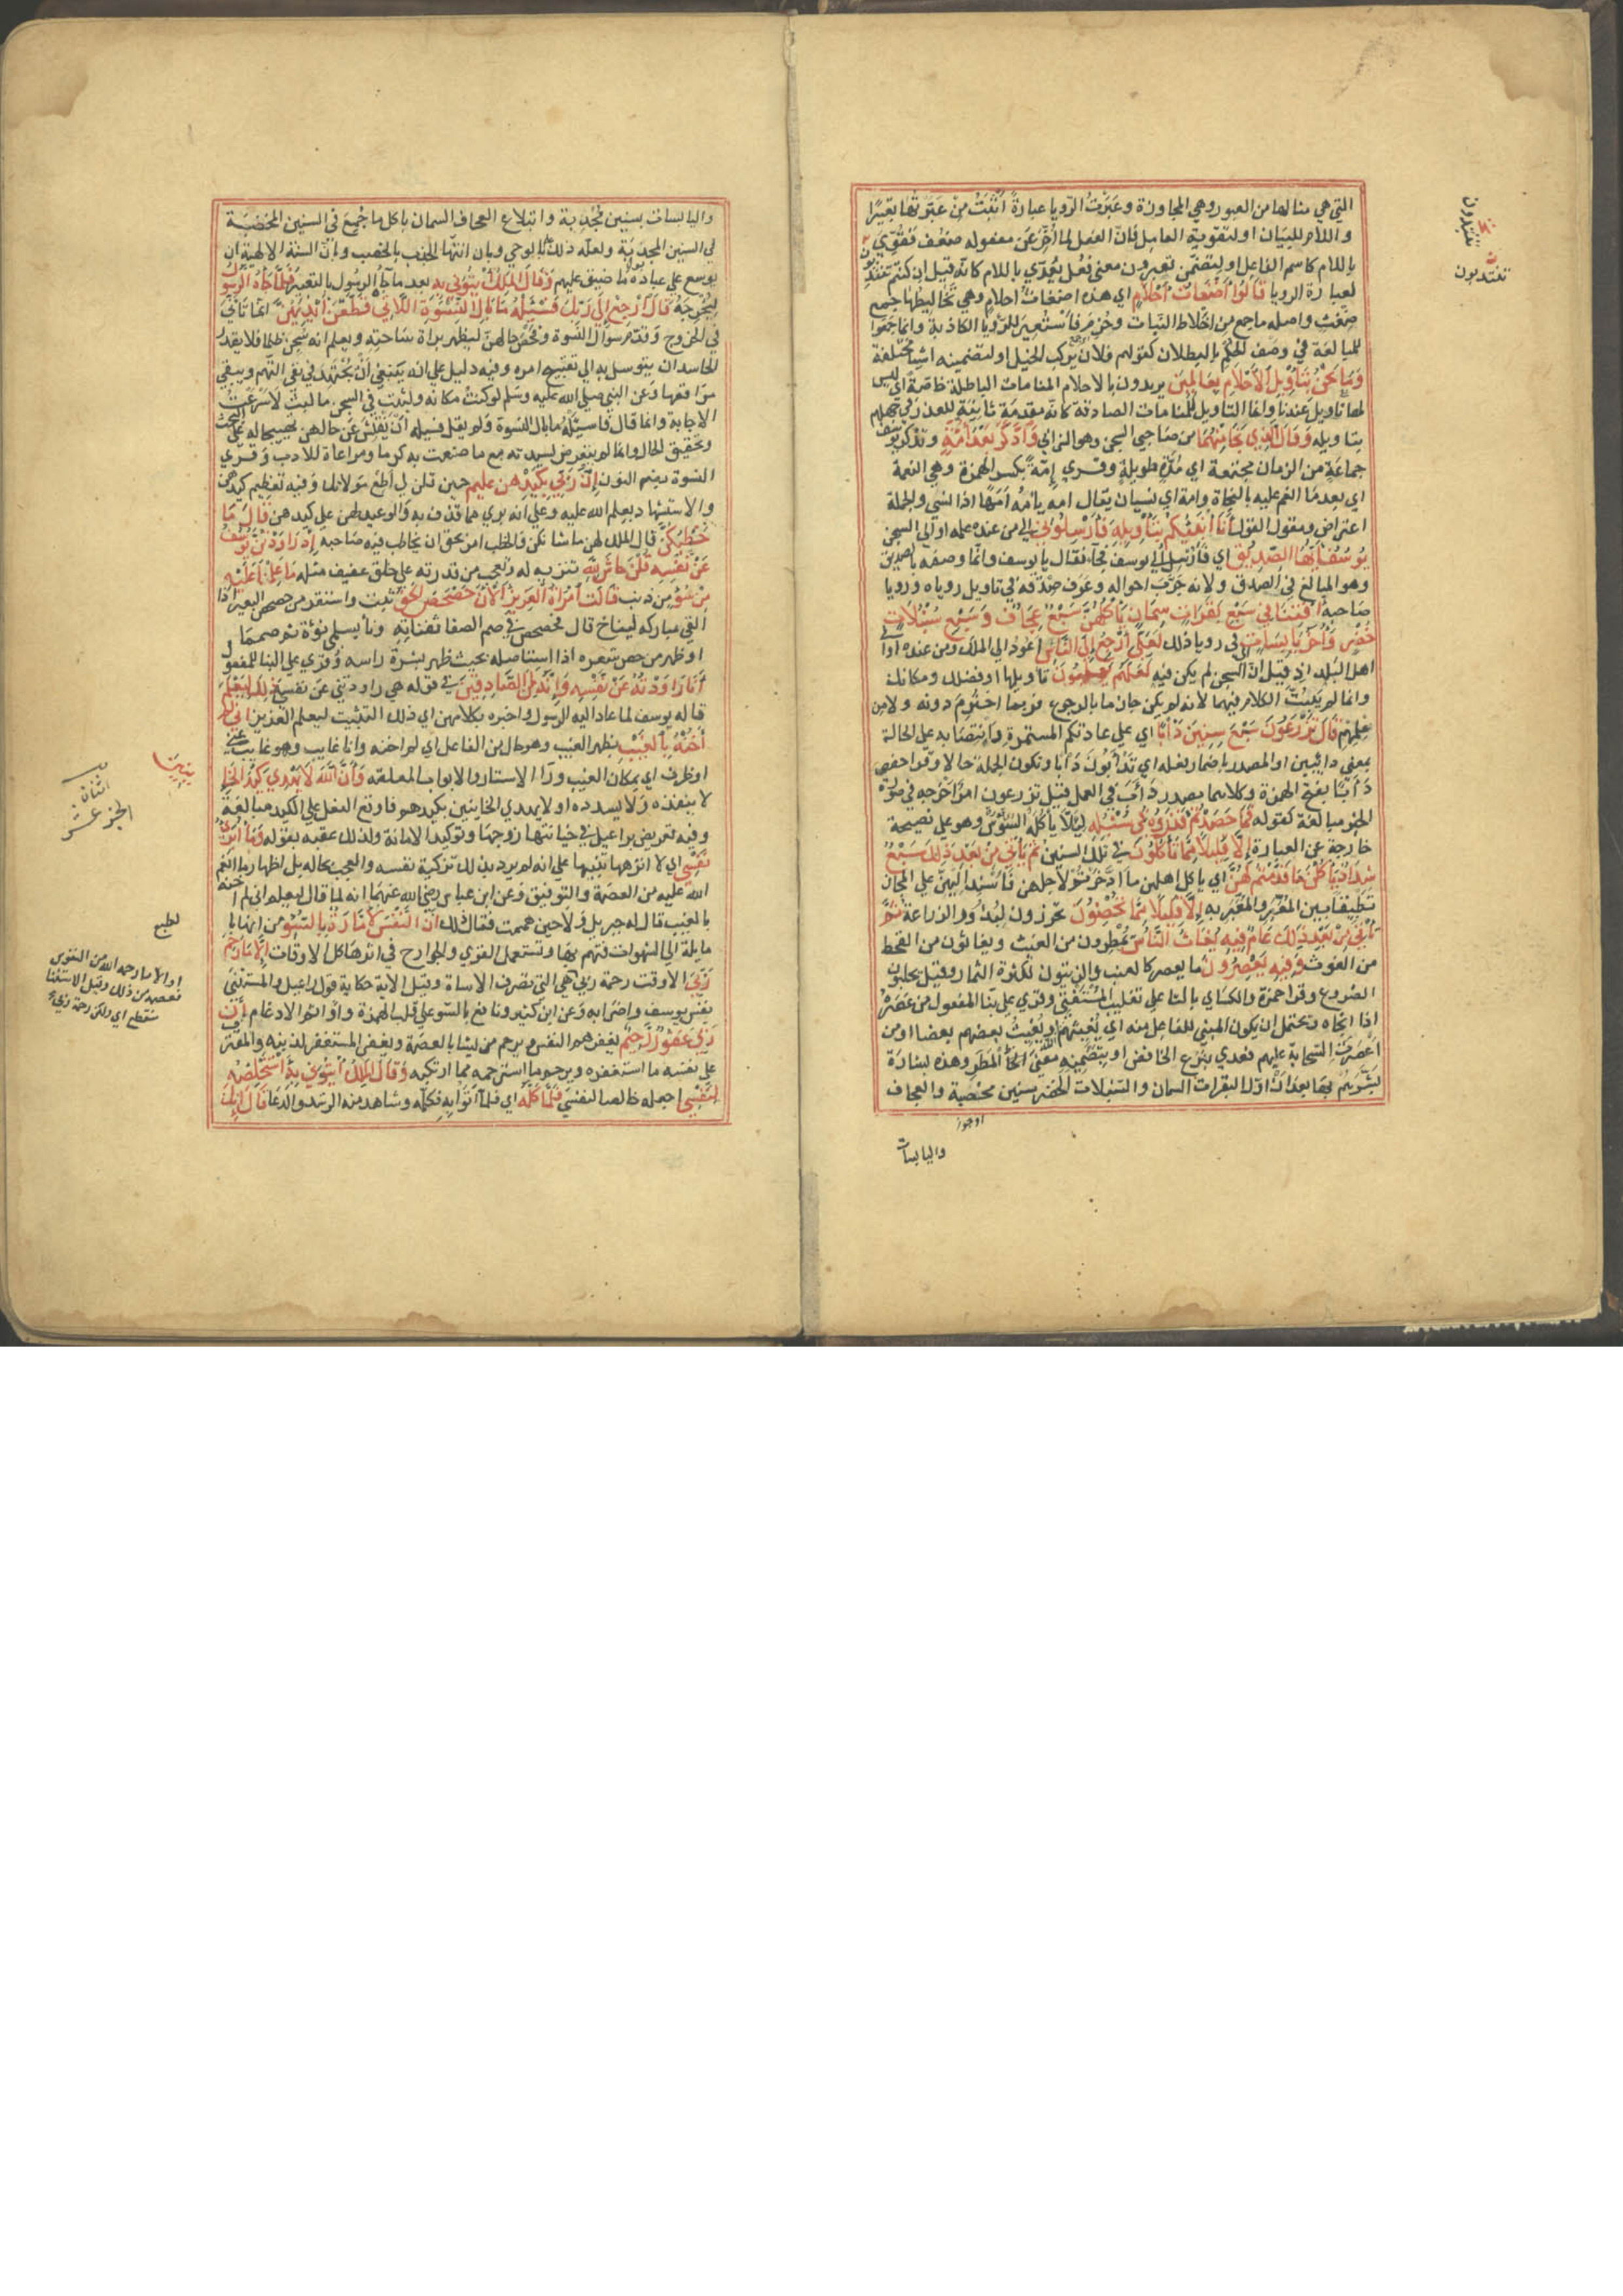 التي هي مثالها من العبور وهي المجاوزة وعبرت الرؤيا عبارة أثبت من عبرتها تعبيرا
واللام للبيان او لتقوية العامل فان الفعل لما اخر عن مفعوله ضعف فقوي
باللام كاسم الفاعل او لتضمن تعبرون معنى فعل يعدي باللام كانه قيل ان كنتم تنتدبون
لعبارة الرويا قَالُوا أَضْغَاثُ أَحْلَامٍ اي هذه اضغاث احلام وهي تخاليطها جمع
ضغث واصله ما جمع من اخلاط النبات وحزم فاستعير للرؤيا الكاذبة وانما جمعوا
للمبالغة في وصف الحلم بالبطلان كقولهم فلان يركب الخيل او لتضمينه اشيا مختلفة
وَمَا نَحْنُ بِتَأْوِيلِ الْأَحْلَامِ بِعَالِمِينَ يريدون بالاحلام المنامات الباطلة خاصة اي ليس
لها تاويل عندنا وانما التاويل للمنامات الصادقة كانه مقدمة ثانية للعذر في جهلهم
بتاويله وَقَالَ الَّذِي نَجَا مِنْهُمَا من صاحبي السجن وهو الشرابي وَادَّكَرَ بَعْدَ أُمَّةٍ وتذكر يوسف
جماعة من الزمان مجتمعة اي مدة طويلة وقري إمة بكسر الهمزة وهي النعمة
اي بعد ما انعم عليه بالنجاة وامة اي نسيان يقال امه يامه امها اذا نسي والجملة
اعتراض ومقول القول أَنَا أُنَبِّئُكُمْ بِتَأْوِيلِهِ فَأَرْسِلُونِ الى من عنده علمه او الى السجن
يُوسُفُ أَيُّهَا الصِّدِّيقُ اي فارسل الى يوسف فجاء فقال يا يوسف وانما وصفه بالصديق
وهو المبالغ في الصدق ولانه جرب احواله وعرف صدقه في تاويل روياه ورويا
صاحبه أَفْتِنَا فِي سَبْعِ بَقَرَاتٍ سِمَانٍ يَأْكُلُهُنَّ سَبْعٌ عِجَافٌ وَسَبْعِ سُنْبُلَاتٍ
خُضْرٍ وَأُخَرَ يَابِسَاتٍ اي في رويا ذلك لَعَلِّي أَرْجِعُ إِلَى النَّاسِ اعود الى الملك ومن عنده او الى
اهل البلد اذ قيل ان السجن لم يكن فيه لَعَلَّهُمْ يَعْلَمُونَ تاويلها او فضلك ومكانك
وانما لم يبت الكلام فيهما لانه لم يكن جازما بالرجوع فربما اخترم دونه ولا من
علمهم قَالَ تَزْرَعُونَ سَبْعَ سِنِينَ دَأَبًا اي على عادتكم المستمرة وانتصابه على الحالة
بمعنى دائبين او المصدر باضمار فعله اي تدأبون دأبا وتكون الجملة حالا وقرا حفص
دأبا بفتح الهمزة وكلاهما مصدر دأب في العمل قيل تزرعون امر اخرجه في صورة
الخبر مبالغة كقوله فَمَا حَصَدْتُمْ فَذَرُوهُ فِي سُنْبُلِهِ ليلا ياكله السوس وهو على نصيحة
خارجة عن العبارة إِلَّا قَلِيلًا مِمَّا تَأْكُلُونَ في تلك السنين ثُمَّ يَأْتِي مِنْ بَعْدِ ذَلِكَ سَبْعٌ
شِدَادٌ يَأْكُلْنَ مَا قَدَّمْتُمْ لَهُنَّ اي ياكل اهلهن ما ادخرتم لاجلهن فاسند اليهن على المجاز
تطبيقا بين المعبر والمعبر به إِلَّا قَلِيلًا مِمَّا تُحْصِنُونَ تحرزون لبذور الزراعة ثُمَّ
يَأْتِي مِنْ بَعْدِ ذَلِكَ عَامٌ فِيهِ يُغَاثُ النَّاسُ يمطرون من الغيث ويغاثون من القحط
من الغوث وَفِيهِ يَعْصِرُونَ ما يعصر كالعنب والزيتون لكثرة الثمار وقيل يحلبون
الضروع وقرا حمزة والكساي بالتا على تغليب المستفتي وقري على بنا المفعول من عصره
اذا انجاه ويحتمل ان يكون المبني للفاعل منه اي يغيثهم الله ويغيث بعضهم بعضا او من
اعصرت السحابة عليهم فعدي بنزع الخافض او بتضمينه معنى المطر وهذه بشارة
بشرهم بها بعد ان اول البقرات السمان والسنبلات الخضر بسنين مخصبة والعجاف
واليابسات
تنتدبون
تنتدبون
واليابسات بسنين مجدبة وابتلاع العجاف السمان باكل ما جمع في السنين المخصبة
في السنين المجدبة ولعله علم ذلك بالوحي وبان انتها الجدب بالخصب وان السنة الالهية ان
يوسع على عباده بعد ما ضيق عليهم وَقَالَ الْمَلِكُ ائْتُونِي بِهِ بعد ما جآه الرسول بالتعبير فَلَمَّا جَاءَهُ الرَّسُولُ
ليخرجه قَالَ ارْجِعْ إِلَى رَبِّكَ فَسْئَلْهُ مَا بَالُ النِّسْوَةِ اللَّاتِي قَطَّعْنَ أَيْدِيَهُنَّ انما تانى
في الخروج وقدم سوال النسوة وفحص حالهن ليظهر براة ساحته ويعلم انه سجن ظلما فلا يقدر
الحاسد ان يتوسل به الى تقبيح امره وفيه دليل على انه ينبغي أن يجتهد في نفي التهم ويتقي
مواقعها وعن النبي صلى الله عليه وسلم لو كنت مكانه ولبثت في السجن ما لبث لاسرعت
الاجابة وانما قال فاسئله ما بال النسوة ولم يقل فسله ان يفتش عن حالهن تهييجا له على البحث
وتحقيق الحال وانما لم يتعرض لسيدته مع ما صنعت به كرما ومراعاة للادب وقري
النسوة بضم النون إِنَّ رَبِّي بِكَيْدِهِنَّ عَلِيمٌ حين قلن لي اطع مولاتك وفيه تعظيم كيدهن
والاستشهاد بعلم الله عليه وعلى انه بري مما قذف به والوعيد لهن على كيدهن قَالَ مَا
خَطْبُكُنَّ قال الملك لهن ما شانكن والخطب امر يحق ان يخاطب فيه صاحبه إِذْ رَاوَدْتُنَّ يُوسُفَ
عَنْ نَفْسِهِ قُلْنَ حَاشَ لِلَّهِ تنزيه له وتعجب من قدرته على خلق عفيف مثله مَا عَلِمْنَا عَلَيْهِ
مِنْ سُوءٍ من ذنب قَالَتِ امْرَأَةُ الْعَزِيزِ الْآنَ حَصْحَصَ الْحَقُّ ثبت واستقر من حصحص البعير اذا
القى مباركه ليناخ قال فحصحص في صم الصفا ثفناته وناء بسلمى نوءة ثم صمما
او ظهر من حص شعره اذا استاصله بحيث ظهر بشرة راسه وقري على البنا للمفعول
أَنَا رَاوَدْتُهُ عَنْ نَفْسِهِ وَإِنَّهُ لَمِنَ الصَّادِقِينَ في قوله هي راودتني عن نفسي ذَلِكَ لِيَعْلَمَ
قاله يوسف لما عاد اليه الرسول واخبره بكلامهن اي ذلك التثبيت ليعلم العزيز أَنِّي لَمْ
أَخُنْهُ بِالْغَيْبِ بظهر الغيب وهو حال من الفاعل اي لم اخنه وانا غايب وهو غايب عني
او ظرف اي بمكان الغيب ورآ الاستار والابواب المغلقة وَأَنَّ اللَّهَ لَا يَهْدِي كَيْدَ الْخَائِنِينَ
لا ينفذه ولا يسدده او لا يهدي الخاينين بكيدهم فاوقع الفعل على الكيد مبالغة
وفيه تعريض براعيل في خيانتها زوجها وتوكيد لامانته ولذلك عقبه بقوله وَمَا أُبَرِّئُ
نَفْسِي اي لا انزهها تنبيها على انه لم يرد بذلك تزكية نفسه والعجب بحاله بل اظهار ما انعم
الله عليه من العصمة والتوفيق وعن ابن عباس رضي الله عنهما انه لما قال ليعلم اني لم اخنه
بالغيب قال له جبريل ولا حين هممت فقال ذلك إِنَّ النَّفْسَ لَأَمَّارَةٌ بِالسُّوءِ من انها بالطبع
مايلة الى الشهوات فتهم بها وتستعمل القوي والجوارح في اثرها كل الاوقات إِلَّا مَا رَحِمَ
رَبِّي الا وقت رحمة ربي هي التي تصرف الاساة وقيل الاية حكاية قول راعيل والمستثنى
نفس يوسف واضرابه وعن ابن كثير ونافع بالسو على قلب الهمزة واوا ثم الادغام إِنَّ
رَبِّي غَفُورٌ رَحِيمٌ يغفر هم النفس ويرحم من يشا بالعصمة ويغفر للمستغفر لذنبه والمعترف
على نفسه ما استغفره ويرحمه ما استرحمه مما ارتكبه وَقَالَ الْمَلِكُ ائْتُونِي بِهِ أَسْتَخْلِصْهُ
لِنَفْسِي اجعله خالصا لنفسي فَلَمَّا كَلَّمَهُ اي فلما اتوا به فكلمه وشاهد منه الرشد والدها قَالَ إِنَّكَ
الجزء عشر
او الا ما رحمه الله من النفوس
فعصمه من ذلك وقيل الاستثنا
منقطع اي ولكن رحمة ربي